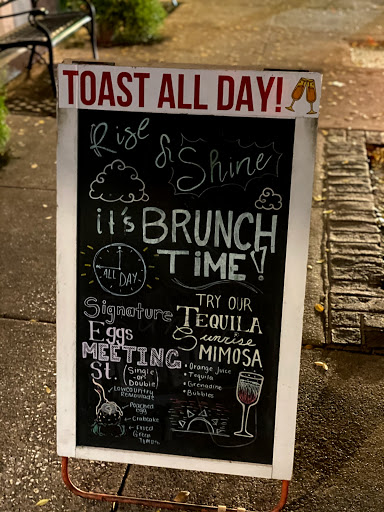 TOAST ALL DAY!
Rise
& Shine
it's BRUNCH
TiME!
ALL DAY
Signature
Eggs
MEETING
St. (Single
-or-
Double)
Lowcountry
Poached
egg
Crabcake
Fried
Green
Tomato
TRY OUR
TEQUILA
Sunrise
MIMOSA
• Orange Juice
• Tequila
• Grenadine
• Bubbles